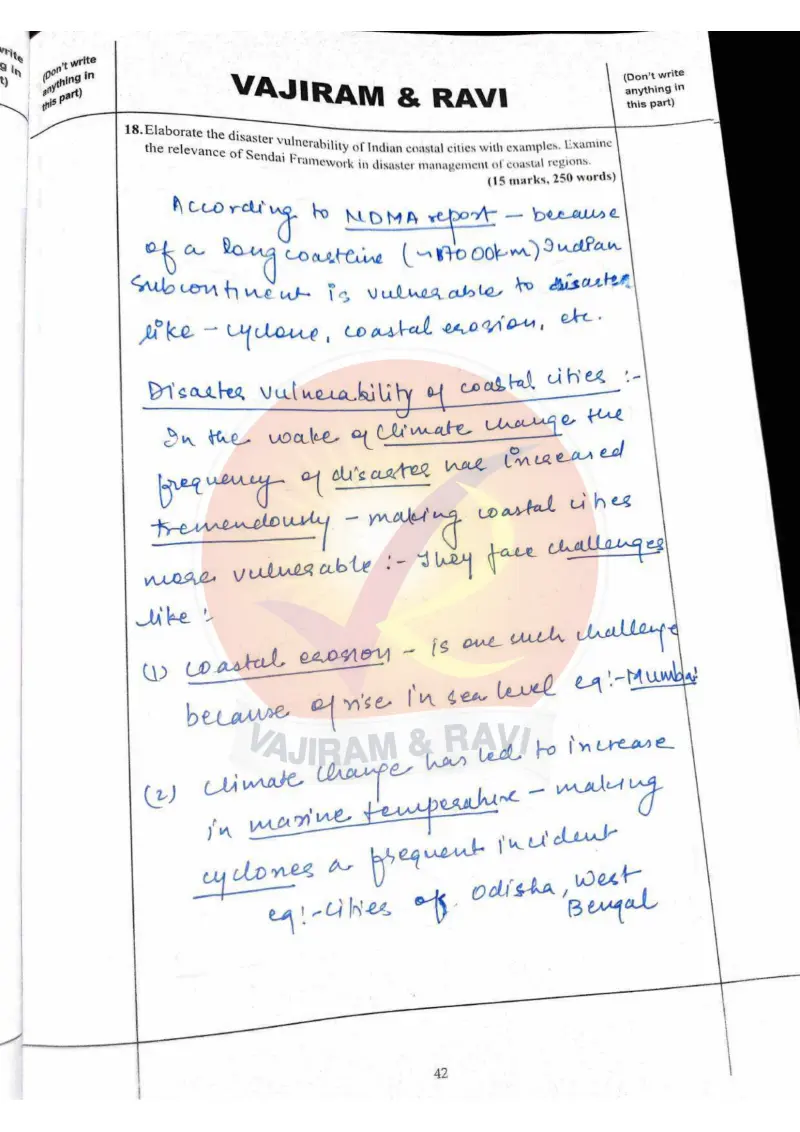 write
g in
t)
(Don't write
anything in
this part)
VAJIRAM & RAVI
(Don't write
anything in
this part)
18. Elaborate the disaster vulnerability of Indian coastal cities with examples. Examine
the relevance of Sendai Framework in disaster management of coastal regions.
(15 marks, 250 words)
According to NDMA report - because
of a long coastline (~ 000km) Indian
Subcontinent is vulnerable to disaster
like - cyclone, coastal erosion, etc.
Disaster vulnerability of coastal cities :-
In the wake of climate change the
frequency of disaster has increased
tremendously - making coastal cities
more vulnerable :- They face challenges
like :-
(1) coastal erosion - is one such challenge
because of rise in sea level eg:- Mumbai
VAJIRAM & RAVI
(2) climate change has led to increase
in marine temperature - making
cyclones a frequent incident
eg:- cities of Odisha, West
Bengal
42